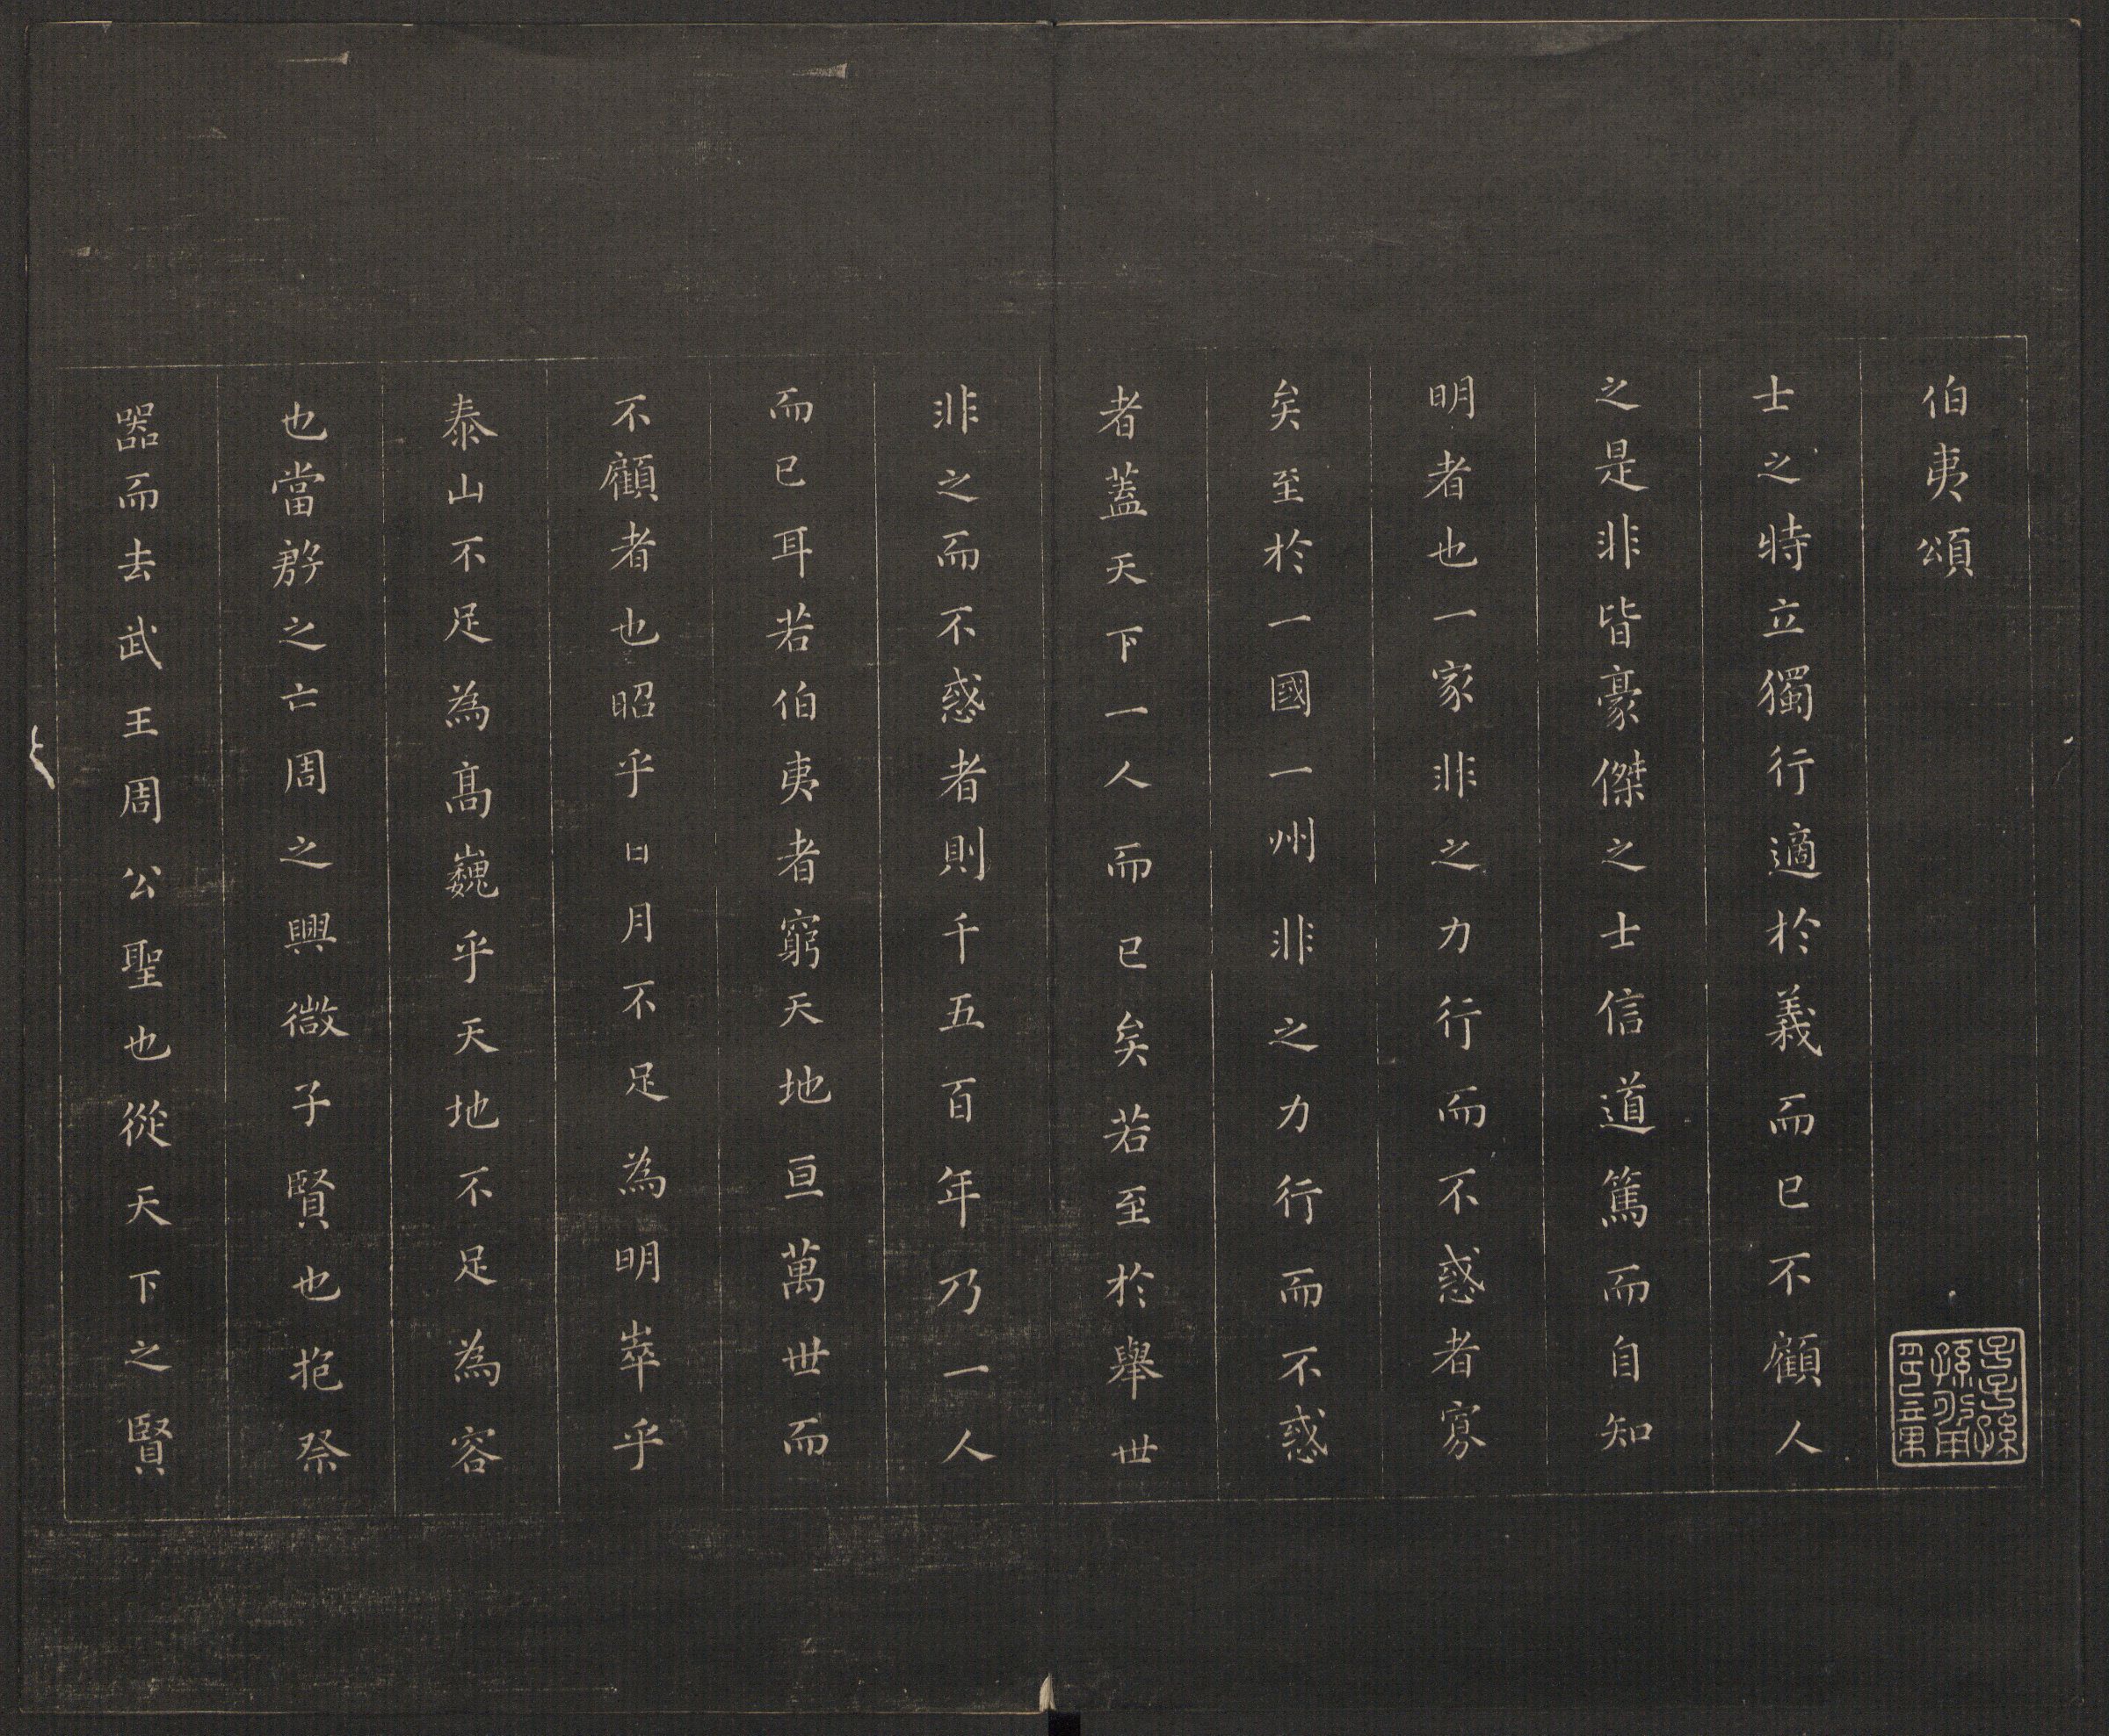 伯夷頌
士之時立獨行適於義而已不顧人
之是非皆豪傑之士信道篤而自知
明者也一家非之力行而不惑者寡
矣至於一國一州非之力行而不惑
者蓋天下一人而已矣若至於舉世
非之而不惑者則千五百年乃一人
而已耳若伯夷者窮天地亘萬世而
不顧者也昭乎日月不足為明崒乎
泰山不足為高巍乎天地不足為容
也當之亡周之興微子賢也抱祭
器而去武王周公聖也從天下之賢